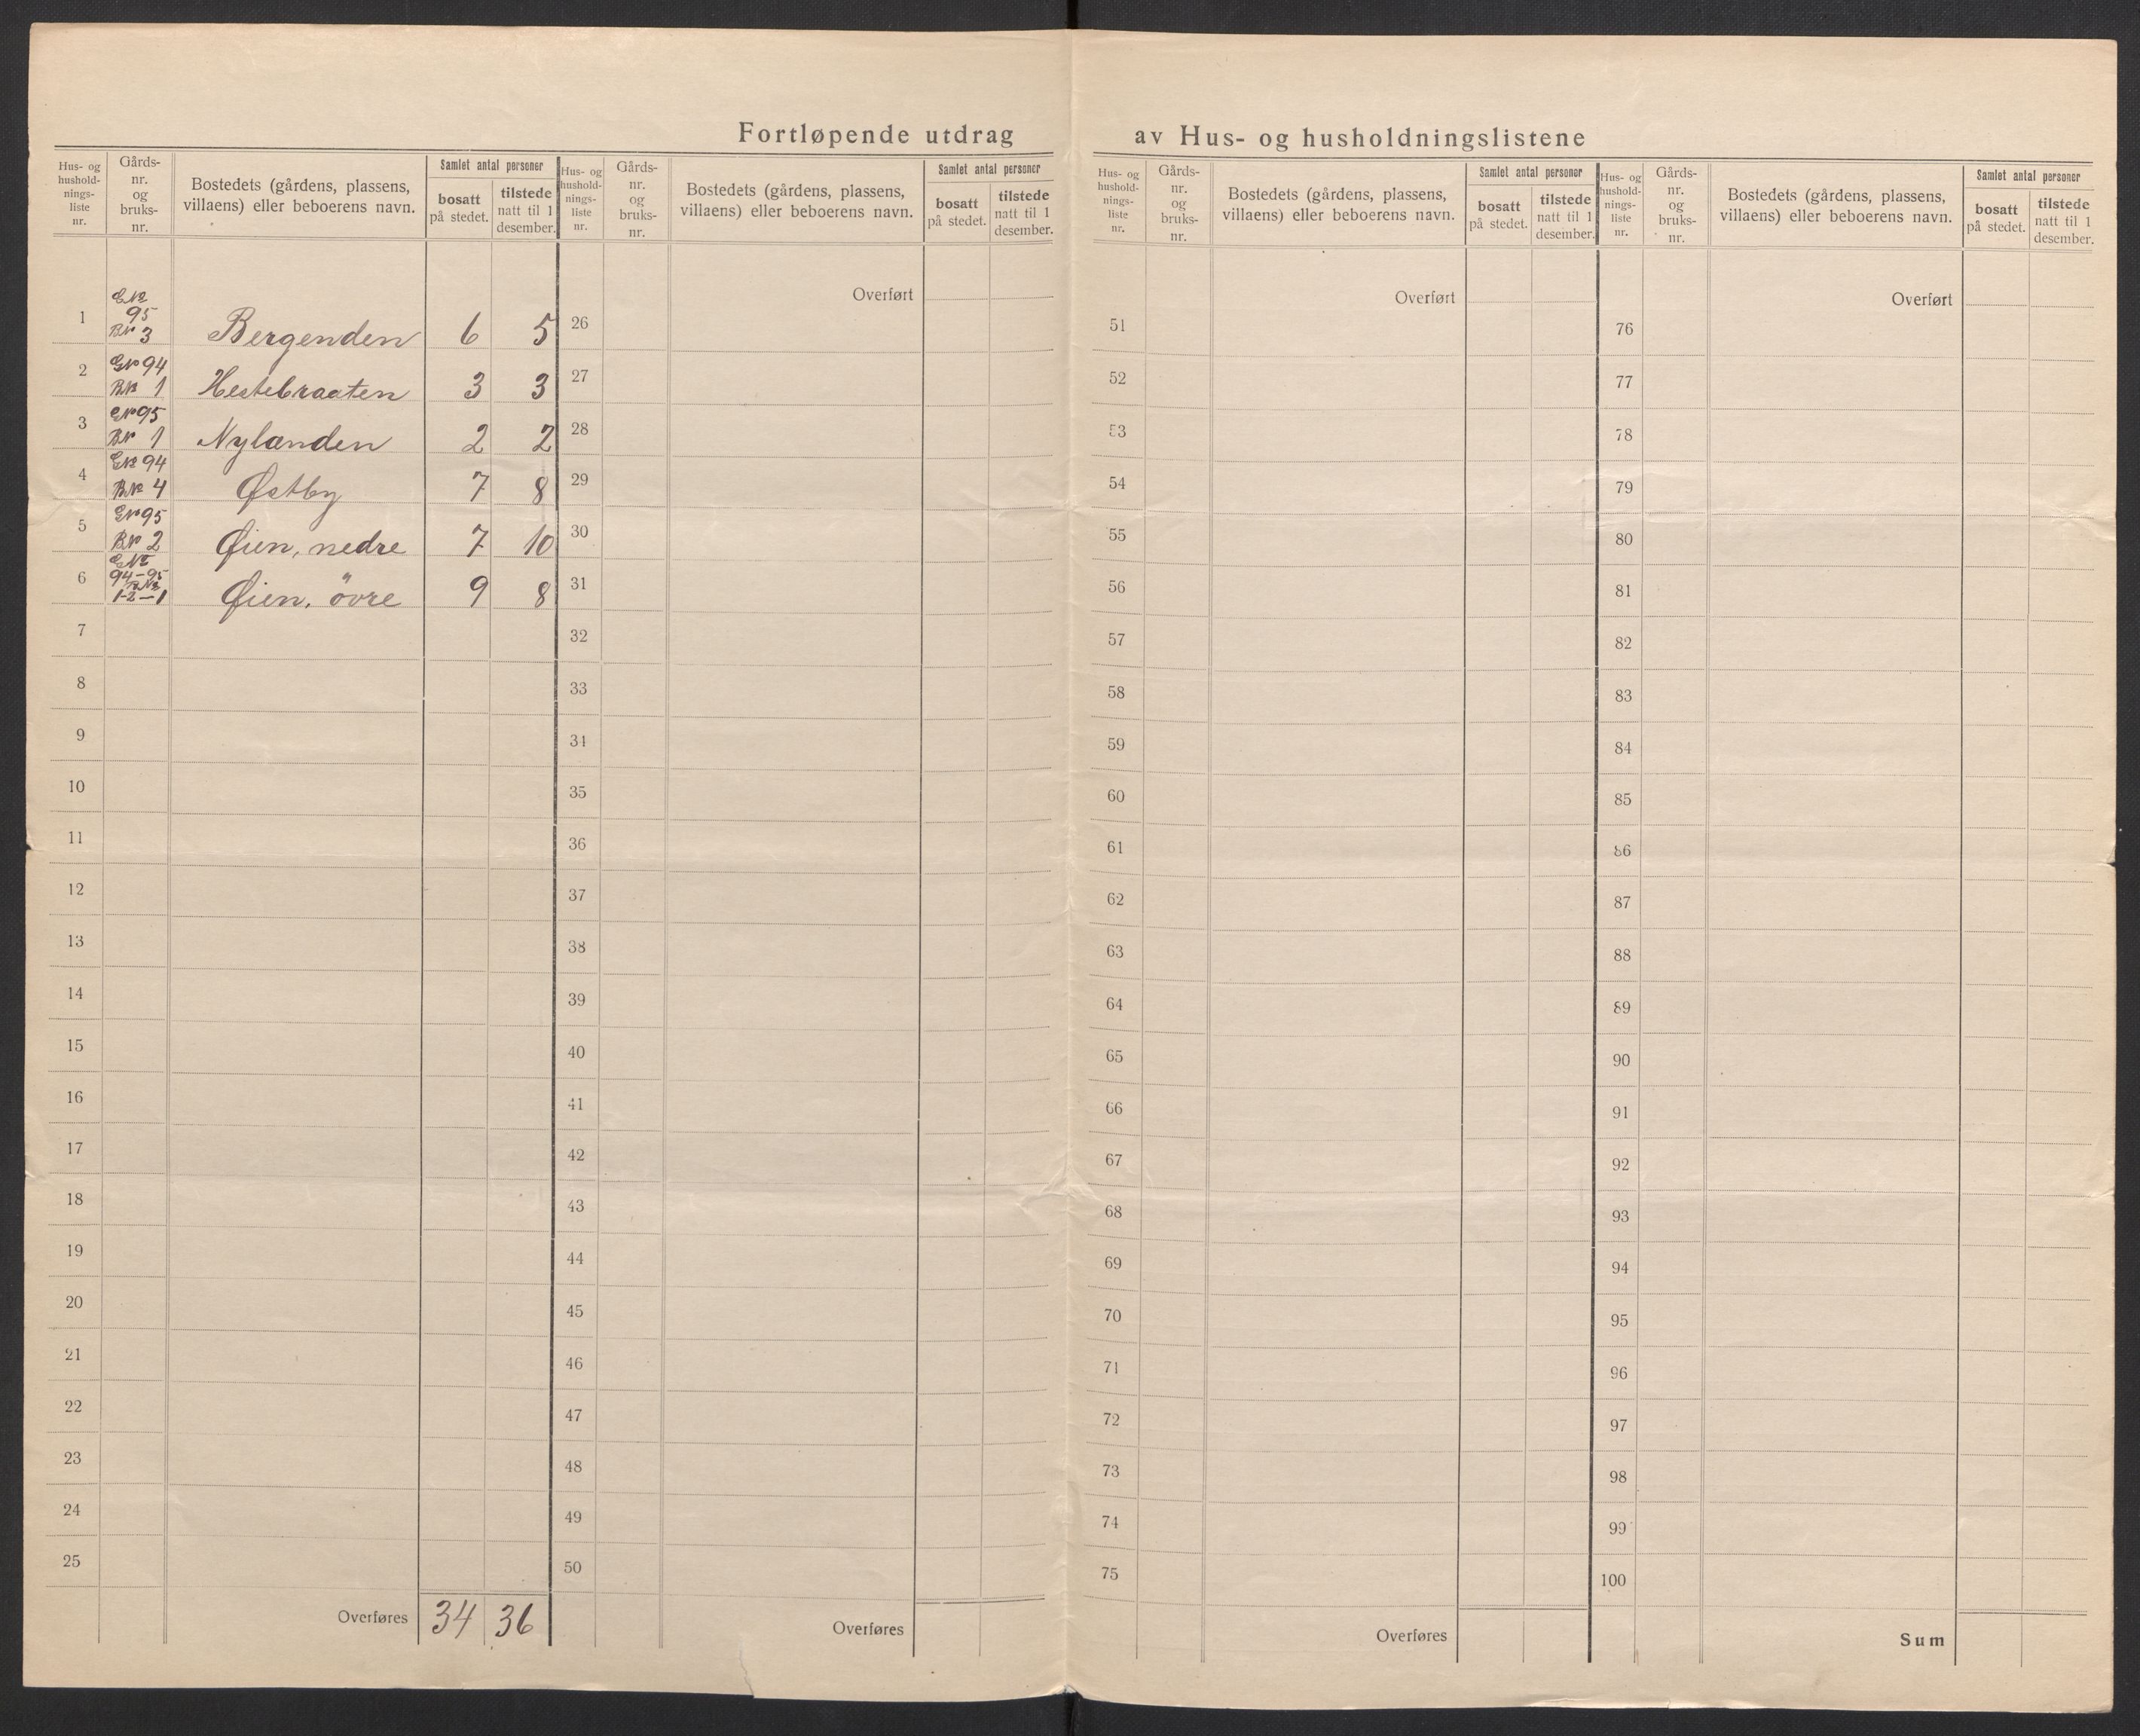 Fortløpende utdrag av Hus- og husholdningslistene
Hus- og hushold- nings- liste nr.
Gårds- nr. og bruks- nr.
Bostedets (gårdens, plassens, villaens) eller beboerens navn.
Samlet antal personer
bosatt på stedet.
tilstede natt til 1 desember.
1 GNr 95 BNr 3 Bergenden 6 5
2 GNr 94 BNr 1 Hestebraaten 3 3
3 GNr 95 BNr 1 Nylænden 2 2
4 GNr 94 BNr 4 Østby 7 8
5 GNr 95 BNr 2 Øien, nedre 7 10
6 GNr 94-95 BNr 1-2-1 Øien, övre 9 8
7
8
9
10
11
12
13
14
15
16
17
18
19
20
21
22
23
24
25
Overføres 34 36
Hus- og hushold- nings- liste nr.
Gårds- nr. og bruks- nr.
Bostedets (gårdens, plassens, villaens) eller beboerens navn.
Samlet antal personer
bosatt på stedet.
tilstede natt til 1 desember.
Overført
26
27
28
29
30
31
32
33
34
35
36
37
38
39
40
41
42
43
44
45
46
47
48
49
50
Overføres
Hus- og hushold- nings- liste nr.
Gårds- nr. og bruks- nr.
Bostedets (gårdens, plassens, villaens) eller beboerens navn.
Samlet antal personer
bosatt på stedet.
tilstede natt til 1 desember.
Overført
51
52
53
54
55
56
57
58
59
60
61
62
63
64
65
66
67
68
69
70
71
72
73
74
75
Overføres
Hus- og hushold- nings- liste nr.
Gårds- nr. og bruks- nr.
Bostedets (gårdens, plassens, villaens) eller beboerens navn.
Samlet antal personer
bosatt på stedet.
tilstede natt til 1 desember.
Overført
76
77
78
79
80
81
82
83
84
85
86
87
88
89
90
91
92
93
94
95
96
97
98
99
100
Sum